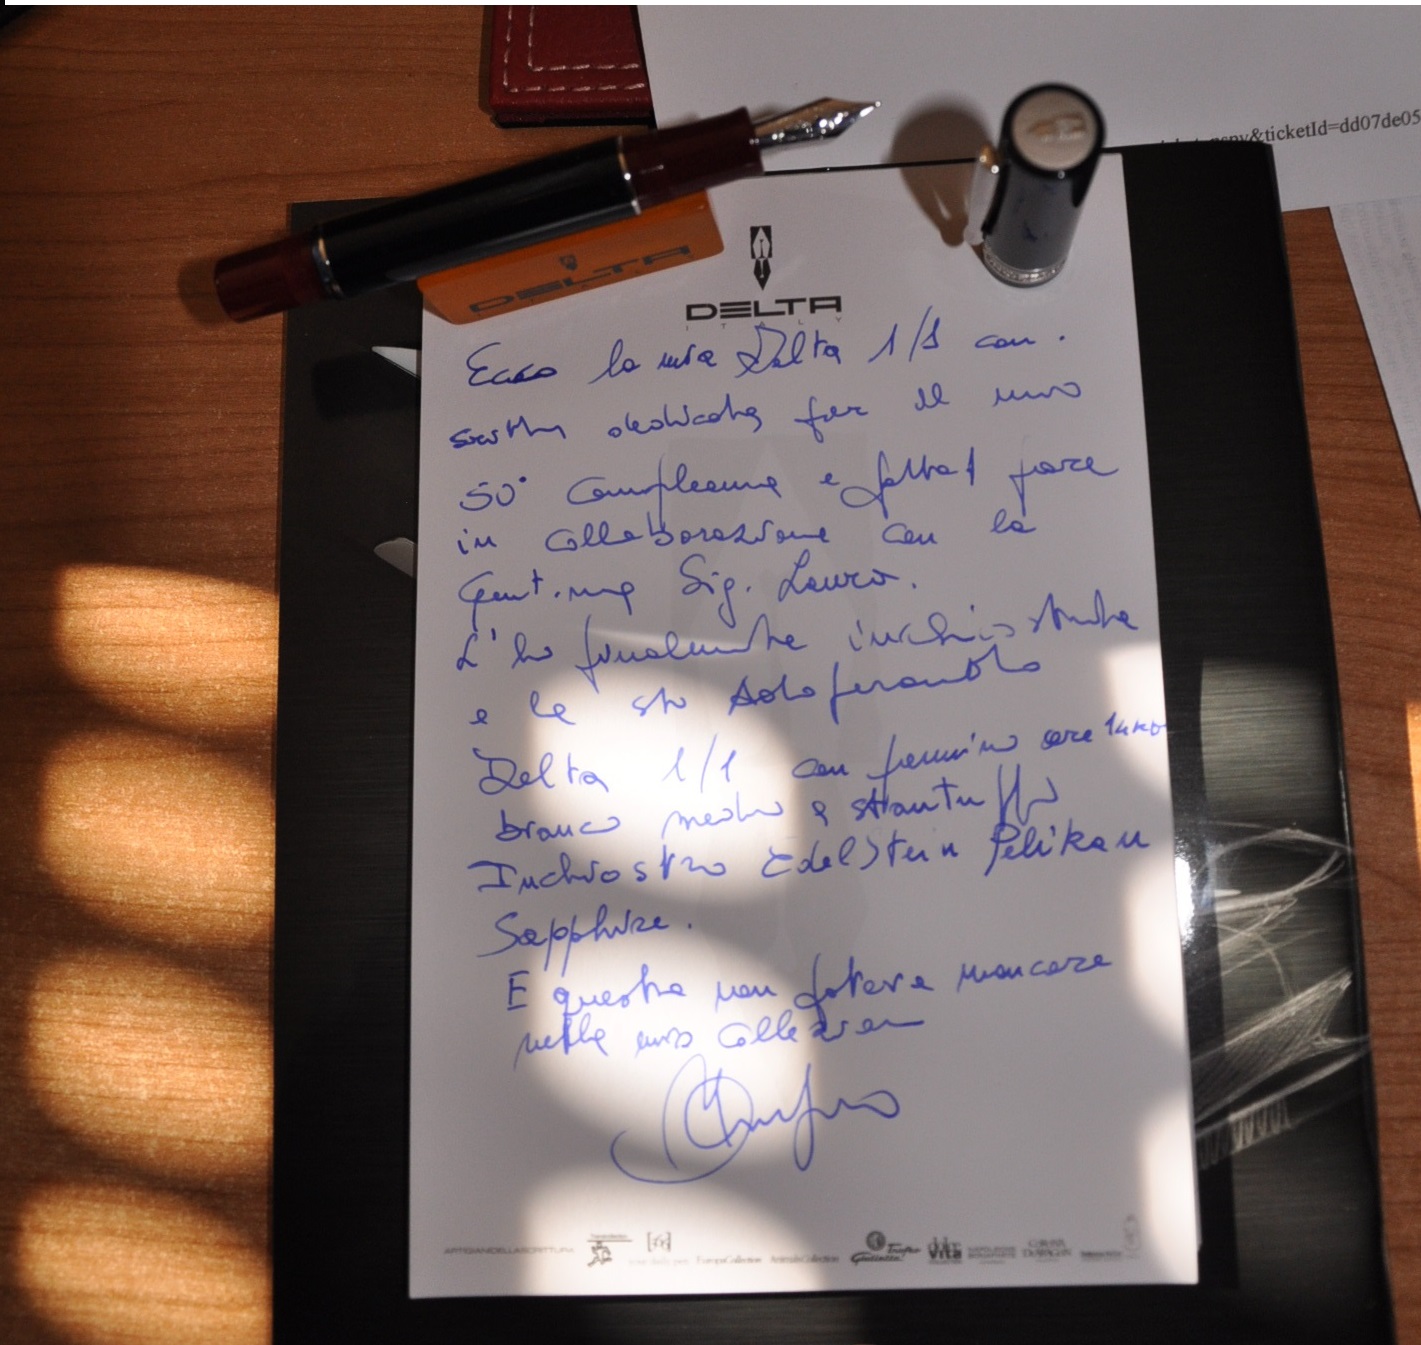 &ticketId=dd07de05
DELTA
DELTA
ITALY
Ecco la mia Delta 1/1 con
scritta dedicata per il mio
50° Compleanno e fatta fare
in collaborazione con la
Gent.ma Sig. Laura.
L'ho finalmente inchiostrata
e la sto adoperando
Delta 1/1 con pennino oro
bianco medio e stantuffo
Inchiostro Edelstein Pelikan
Sapphire.
E questa non poteva mancare
nella mia collezione
ARTIGIANIDELLASCRITTURA [365] EuropaCollection AnimalsCollection Trofeo Giulietta! VITA